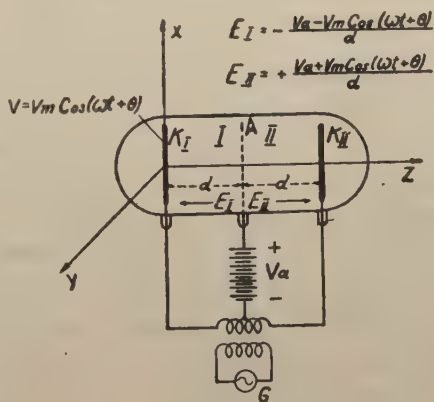 X
E_I = - \frac{Va - Vm Cos(ωt+θ)}{d}
E_II = + \frac{Va + Vm Cos(ωt+θ)}{d}
V = Vm Cos(ωt+θ)
K_I I A II K_II
Z
d d
E_I E_II
Y
+
Va
-
G